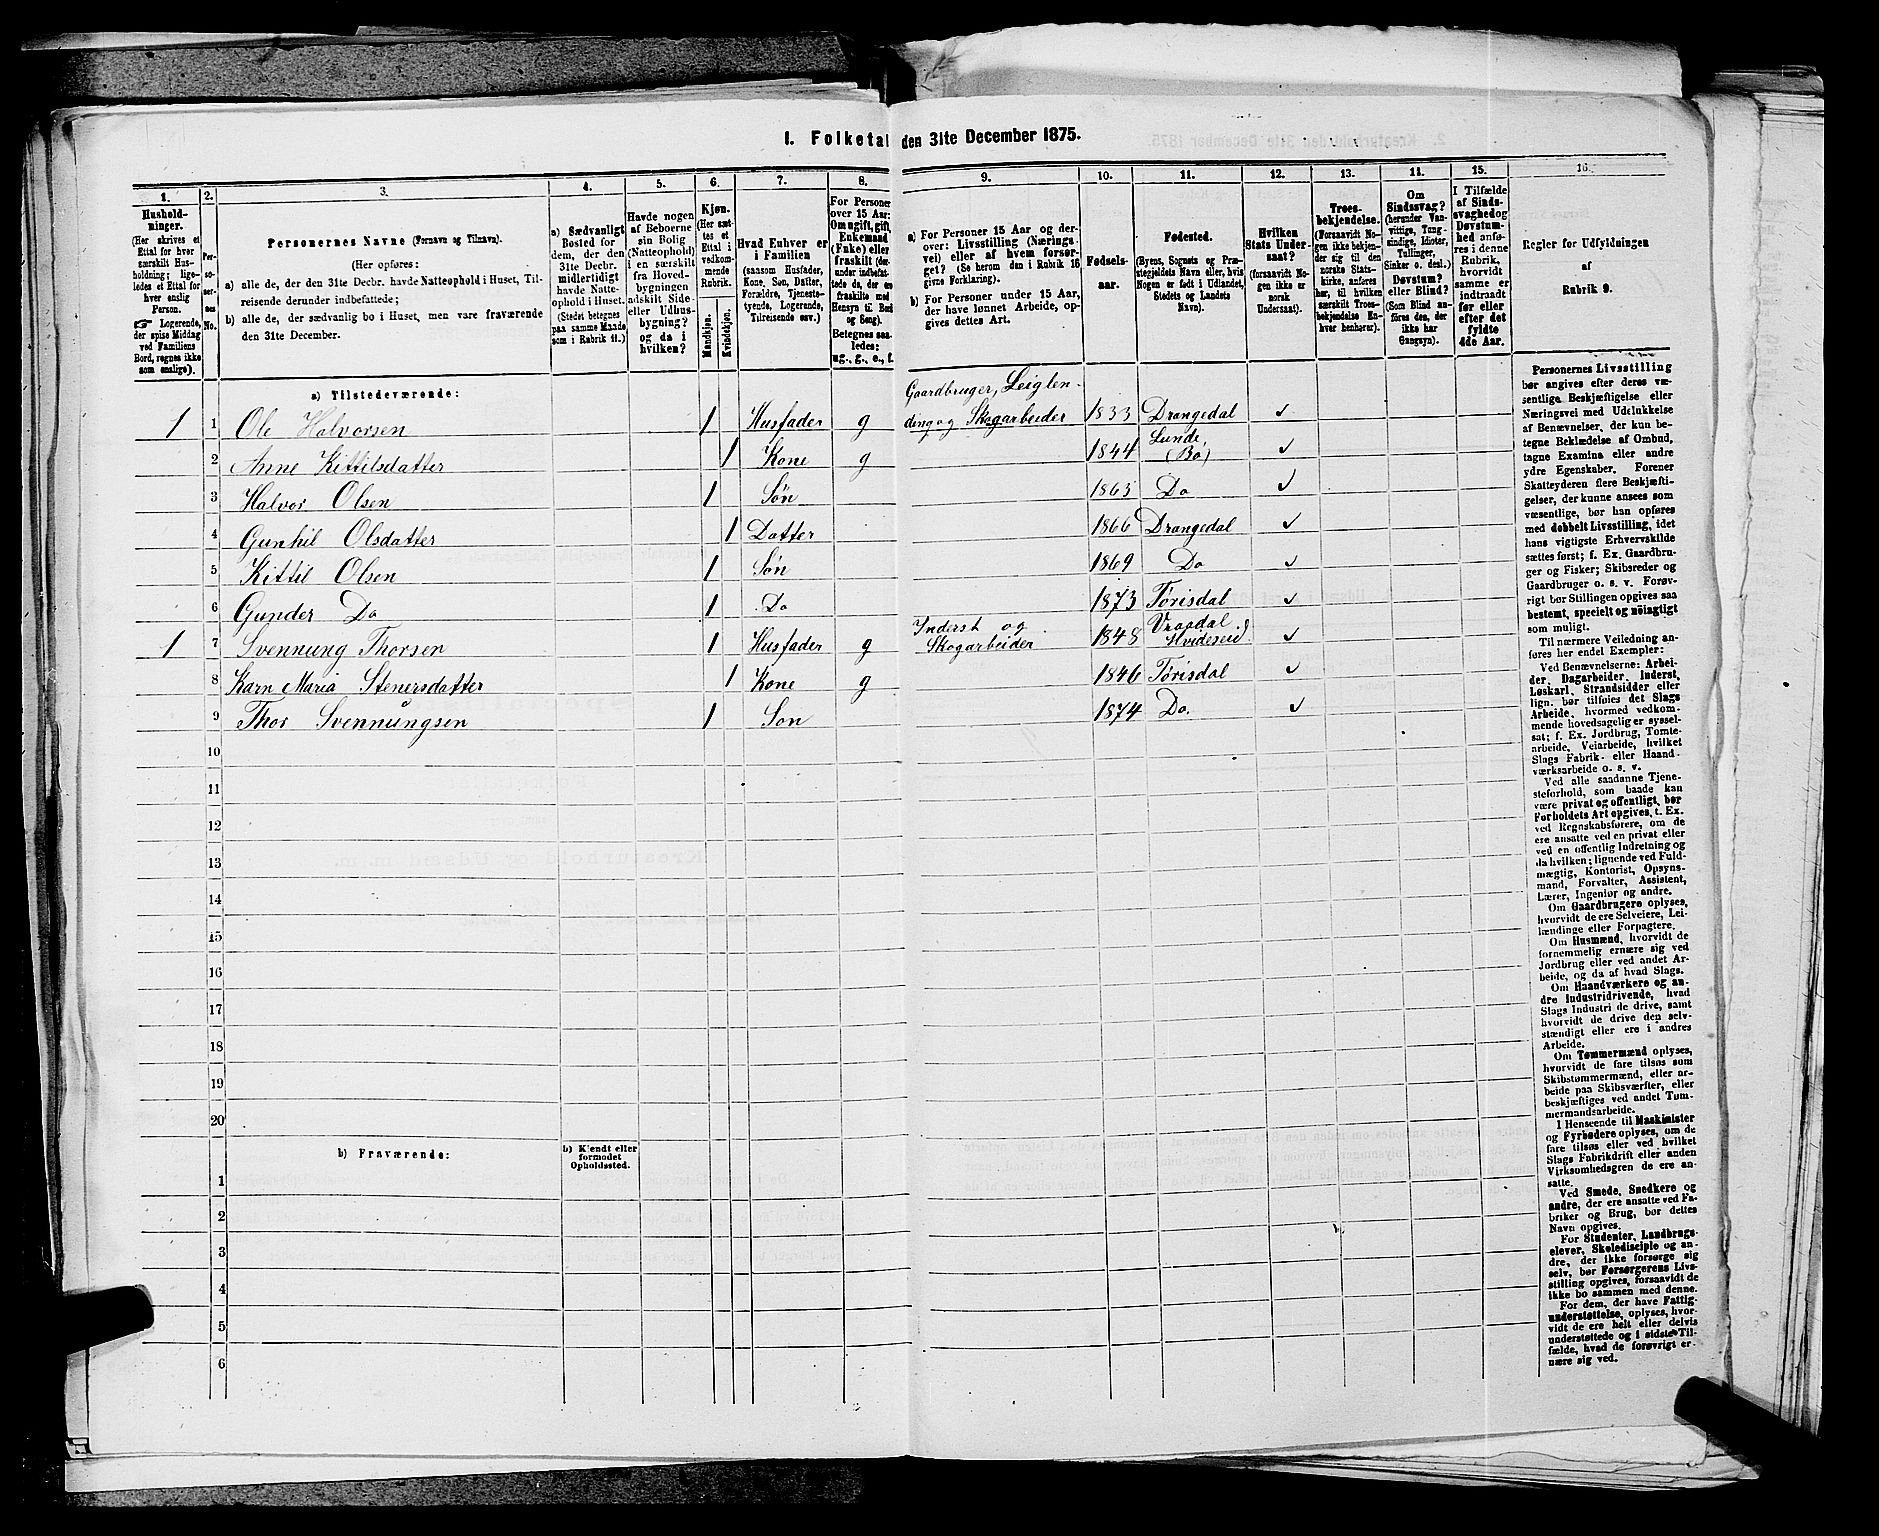 1. Folketal den 31te December 1875.
1.
2.
3.
4.
5.
6.
7.
8.
9.
10.
11.
12.
13.
14.
15.
16.
Hushold-
ninger.
(Her skrives et
Ettal for hver
særskilt Hus-
holdning; lige-
ledes et Ettal for
hver enslig
Person.
☞ Logerende,
der spise Middag
ved Familiens
Bord, regnes ikke
som enslige).
Per-
so-
ner-
nes
No.
Personernes Navne (Fornavn og Tilnavn).
(Her opføres:
a) alle de, der den 31te Decbr. havde Natteophold i Huset, Til-
reisende derunder indbefattede;
b) alle de, der sædvanlig bo i Huset, men vare fraværende
den 31te December.
a) Sædvanligt
Bosted for
dem, der den
31te Decbr.
midlertidigt
havde Natte-
ophold i Huset.
(Stedet betegnes
paa samme Maade
som i Rubrik 11.)
Havde nogen
af Beboerne
sin Bolig
(Natteophold)
i en særskilt
fra Hoved-
bygningen
adskilt Side-
eller Udhus-
bygning?
og da i
hvilken?
Kjøn.
(Her sæt-
tes et
Ettal i
vedkom-
mende
Rubrik.
Mandkjøn.
Kvindekjøn.
Hvad Enhver er
i Familien
(saasom Husfader,
Kone, Søn, Datter,
Forældre, Tjeneste-
tyende, Logerende,
Tilreisende osv.)
For Personer
over 15 Aar:
Om ugift, gift,
Enkemand
(Enke) eller
fraskilt (der-
under indbefat-
tede de, der ere
fraskilte med
Hensyn til Bord
og Seng).
Betegnes saa-
ledes:
ug., g., e., f.
a) For Personer 15 Aar og der-
over: Livsstilling (Nærings-
vei) eller af hvem forsør-
get? (Se herom den i Rubrik 16
givne Forklaring).
b) For Personer under 15 Aar,
der have lønnet Arbeide, op-
gives dettes Art.
Fødsels-
aar.
Fødested.
(Byens, Sognets og Præ-
stegjeldets Navn eller, hvis
Nogen er født i Udlandet,
Stedets og Landets
Navn).
Hvilken
Stats Under-
saat?
(forsaavidt No-
gen ikke er
norsk
Undersaat).
Troes-
bekjendelse.
(Forsaavidt No-
gen ikke bekjen-
der sig til den
norske Stats-
kirke, anføres
her, til hvilken
særskilt Troes-
bekjendelse En-
hver henhører).
Om
Sindssvag?
(herunder Van-
vittige, Tung-
sindige, Idioter,
Tullinger,
Sinker o. desl.)
Døvstum?
eller Blind?
(Som Blind an-
føres den, der
ikke har
Gangsyn).
I Tilfælde
af Sinds-
svaghed og
Døvstum-
hed anfø-
res i denne
Rubrik,
hvorvidt
samme er
indtraadt
før eller
efter det
fyldte
4de Aar.
Regler for Udfyldningen
af
Rubrik 9.
a) Tilstedeværende:
1 1 Ole Halvorsen 1 Husfader g Gaardbruger, Leiglen-
ding og Skogarbeider 1833 Drangedal ✓
2 Anne Kittilsdatter 1 Kone g 1844 Lunde
(Bø) ✓
3 Halvor Olsen 1 Søn 1863 Do ✓
4 Gunhil Olsdatter 1 Datter 1866 Drangedal ✓
5 Kittil Olsen 1 Søn 1869 Do ✓
6 Gunder Do 1 Do 1873 Tørisdal ✓
1 7 Svennung Thorsen 1 Husfader g Inderst og
Skogarbeider 1848 Vraadal
Hvideseid ✓
8 Karn Maria Stenersdatter 1 Kone g 1846 Tørisdal ✓
9 Thor Svennungsen 1 Søn 1874 Do. ✓
10
11
12
13
14
15
16
17
18
19
20
b) Fraværende:
b) Kjendt eller
formodet
Opholdssted.
1
2
3
4
5
6
Personernes Livsstilling
bør angives efter deres væ-
sentlige Beskjæftigelse eller
Næringsvei med Udelukkelse
af Benævnelser, der kun be-
tegne Beklædelse af Ombud,
tagne Examina eller andre
ydre Egenskaber. Forener
Skatteyderen flere Beskjæfti-
gelser, der kunne ansees som
væsentlige, bør han opføres
med dobbelt Livsstilling, idet
hans vigtigste Erhvervskilde
sættes først; f. Ex. Gaardbru-
ger og Fisker; Skibsreder og
Gaardbruger o. s. v. Forøv-
rigt bør Stillingen opgives saa
bestemt, specielt og nøiagtigt
som muligt.
Til nærmere Veiledning an-
føres her endel Exempler:
Ved Benævnelserne: Arbei-
der, Dagarbeider, Inderst,
Løskarl, Strandsidder eller
lign. bør tilføies det Slags
Arbeide, hvormed vedkom-
mende hovedsagelig er syssel-
sat; f. Ex. Jordbrug, Tomte-
arbeide, Veiarbeide, hvilket
Slags Fabrik- eller Haand-
værksarbeide o. s. v.
Ved alle saadanne Tjene-
steforhold, som baade kan
være privat og offentligt, bør
Forholdets Art opgives, t. Ex.
ved Regnskabsførere, om de
ere ansatte ved en privat eller
ved en offentlig Indretning og
da hvilken; lignende ved Fuld-
mægtig, Kontorist, Opsyns-
mand, Forvalter, Assistent,
Lærer, Ingeniør og andre.
Om Gaardbrugere oplyses,
hvorvidt de ere Selveiere, Lei-
lændinge eller Forpagtere.
Om Husmænd, hvorvidt de
fornemmelig ernære sig ved
Jordbrug eller ved andet Ar-
beide, og da af hvad Slags.
Om Haandværkere og an-
dre Industridrivende, hvad
Slags Industri de drive, samt
hvorvidt de drive den selv-
stændigt eller ere i andres
Arbeide.
Om Tømmermænd oplyses,
hvorvidt de fare tilsøs som
Skibstømmermænd, eller ar-
beide paa Skibsværfter, eller
beskjæftiges ved andet Tøm-
mermandsarbeide.
I Henseende til Maskinister
og Fyrbødere oplyses, om de
fare tilsøs eller ved hvilket
Slags Fabrikdrift eller anden
Virksomhedsgren de ere an-
satte.
Ved Smede, Snedkere og
andre, der ere ansatte ved Fa-
briker og Brug, bør dettes
Navn opgives.
For Studenter, Landbrugs-
elever, Skoledisciple og an-
dre, der ikke forsørge sig
selv, bør Forsørgerens Livs-
stilling opgives, forsaavidt de
ikke bo sammen med denne.
For dem, der have Fattig-
understøttelse, oplyses, hvor-
vidt de ere helt eller delvis
understøttede og i sidste Til-
fælde, hvad de forøvrigt er-
nære sig ved.